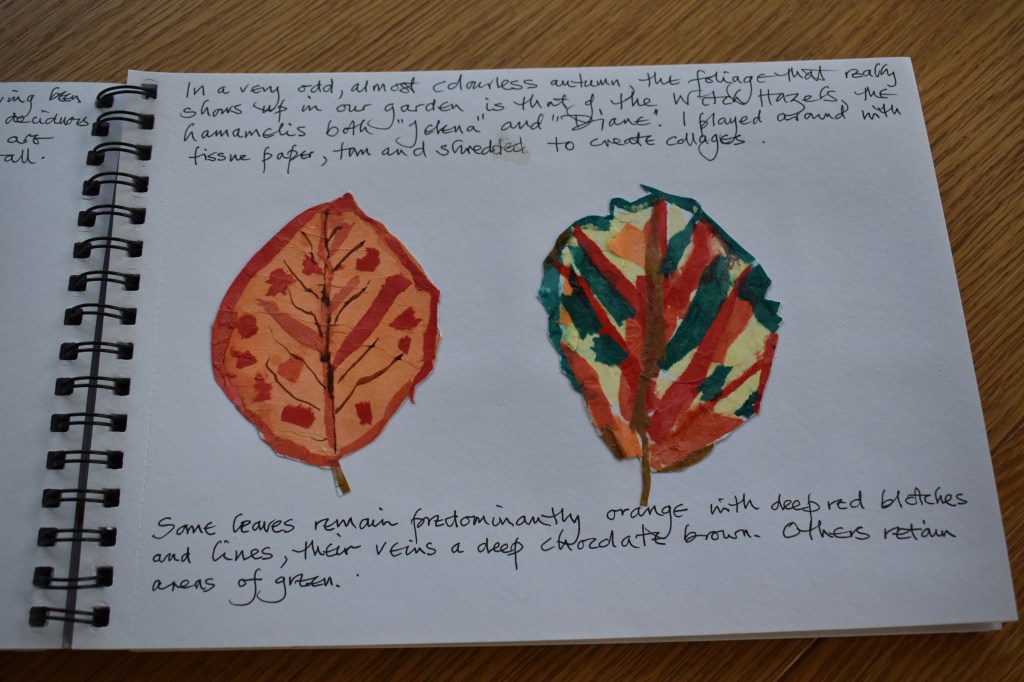 ving been
deciduous
are
all.
In a very odd, almost colourless autumn, the foliage that really
shows up in our garden is that of the Witch Hazels, the
Hamamelis both "Jelena" and "Diane". I played around with
tissue paper, torn and shredded to create collages.
Some leaves remain predominantly orange with deep red blotches
and lines, their veins a deep chocolate brown. Others retain
areas of green.